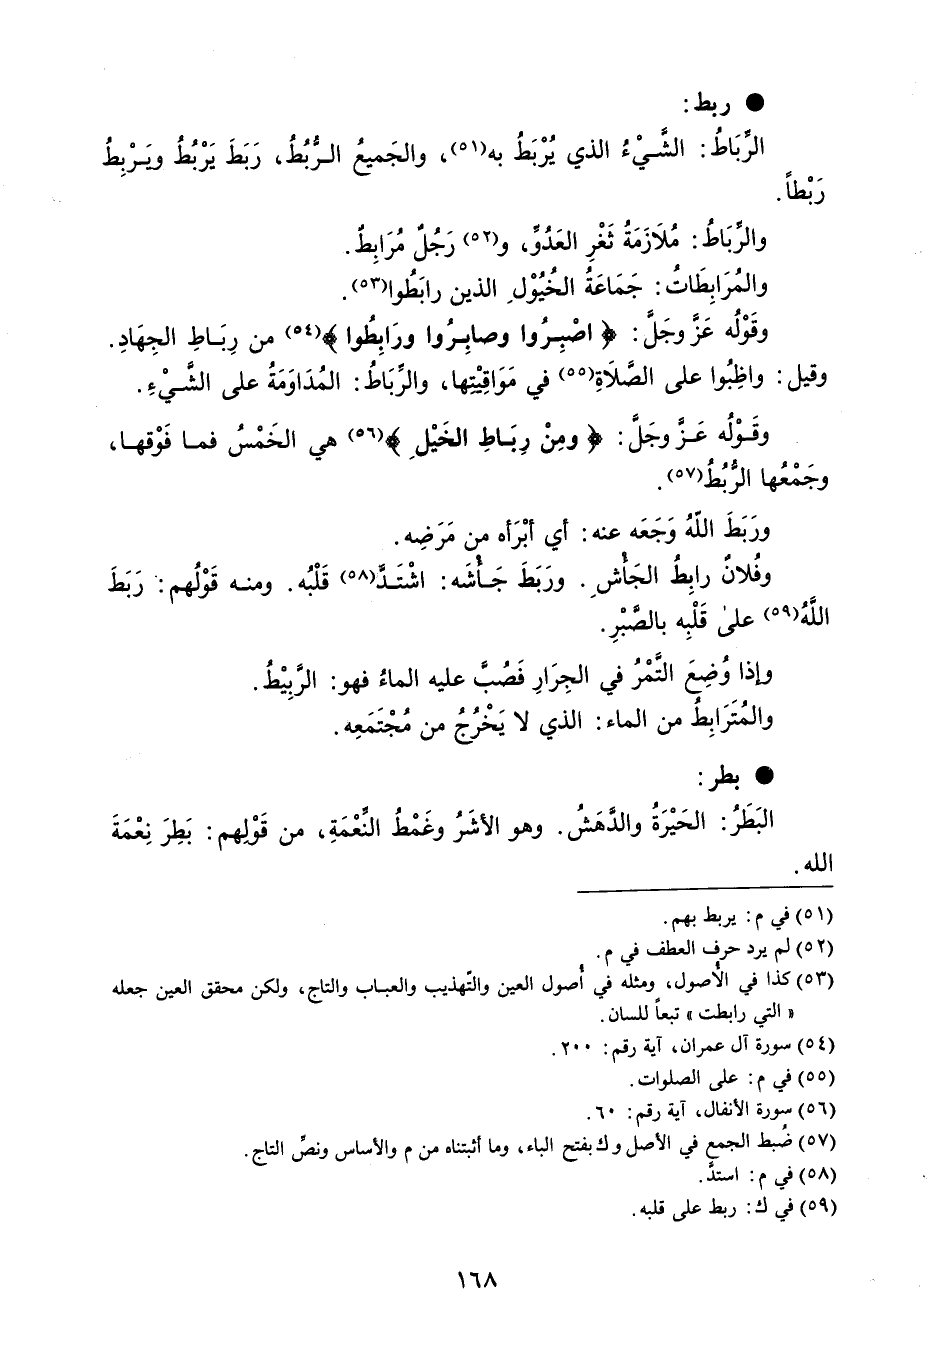 ● ربط :
الرِّبَاطُ : الشَّيْءُ الذي يُرْبَطُ به(٥١)، والجَميعُ الرُّبُطُ، رَبَطَ يَرْبُطُ ويَرْبِطُ
رَبْطاً.
والرِّبَاطُ : مُلَازَمَةُ ثَغْرِ العَدُوِّ، و(٥٢) رَجُلٌ مُرَابِطٌ.
والمُرَابِطَاتُ : جَمَاعَةُ الخُيُوْلِ الذين رابَطُوا(٥٣).
وقَوْلُه عَزَّ وجَلَّ : ﴿ اصْبِرُوا وصابِرُوا ورَابِطُوا ﴾(٥٤) من رِبَاطِ الجِهَادِ.
وقيل : واظِبُوا على الصَّلَاةِ(٥٥) في مَوَاقِيْتِها، والرِّبَاطُ : المُدَاوَمَةُ على الشَّيْءِ.
وقَوْلُه عَزَّ وجَلَّ : ﴿ ومِنْ رِبَاطِ الخَيْلِ ﴾(٥٦) هي الخَمْسُ فما فَوْقها،
وجَمْعُها الرُّبُطُ(٥٧).
ورَبَطَ اللهُ وَجَعَه عنه : أي أبْرَأه من مَرَضِه.
وفُلانٌ رابِطُ الجَأْشِ. ورَبَطَ جَأْشَه : اشْتَدَّ(٥٨) قَلْبُه. ومنه قَوْلُهم : رَبَطَ
اللَّهُ(٥٩) علىٰ قَلْبِه بالصَّبْرِ.
وإذا وُضِعَ التَّمْرُ في الجِرَارِ فَصُبَّ عليه الماءُ فهو : الرَّبِيْطُ.
والمُتَرَابِطُ من الماء : الذي لا يَخْرُجُ من مُجْتَمَعِه.
● بطر :
البَطَرُ : الحَيْرَةُ والدَّهَشُ. وهو الأشَرُ وغَمْطُ النِّعْمَةِ، من قَوْلِهم : بَطِرَ نِعْمَةَ
الله.
(٥١) في م : يربط بهم.
(٥٢) لم يرد حرف العطف في م.
(٥٣) كذا في الأُصول، ومثله في أُصول العين والتّهذيب والعباب والتاج، ولكن محقق العين جعله
« التي رابطت » تبعاً للسان.
(٥٤) سورة آل عمران، آية رقم : ٢٠٠.
(٥٥) في م : على الصلوات.
(٥٦) سورة الأنفال، آية رقم : ٦٠.
(٥٧) ضُبط الجمع في الأصل وك بفتح الباء، وما أثبتناه من م والأساس ونصِّ التاج.
(٥٨) في م : استدَّ.
(٥٩) في ك : ربط على قلبه.
١٦٨